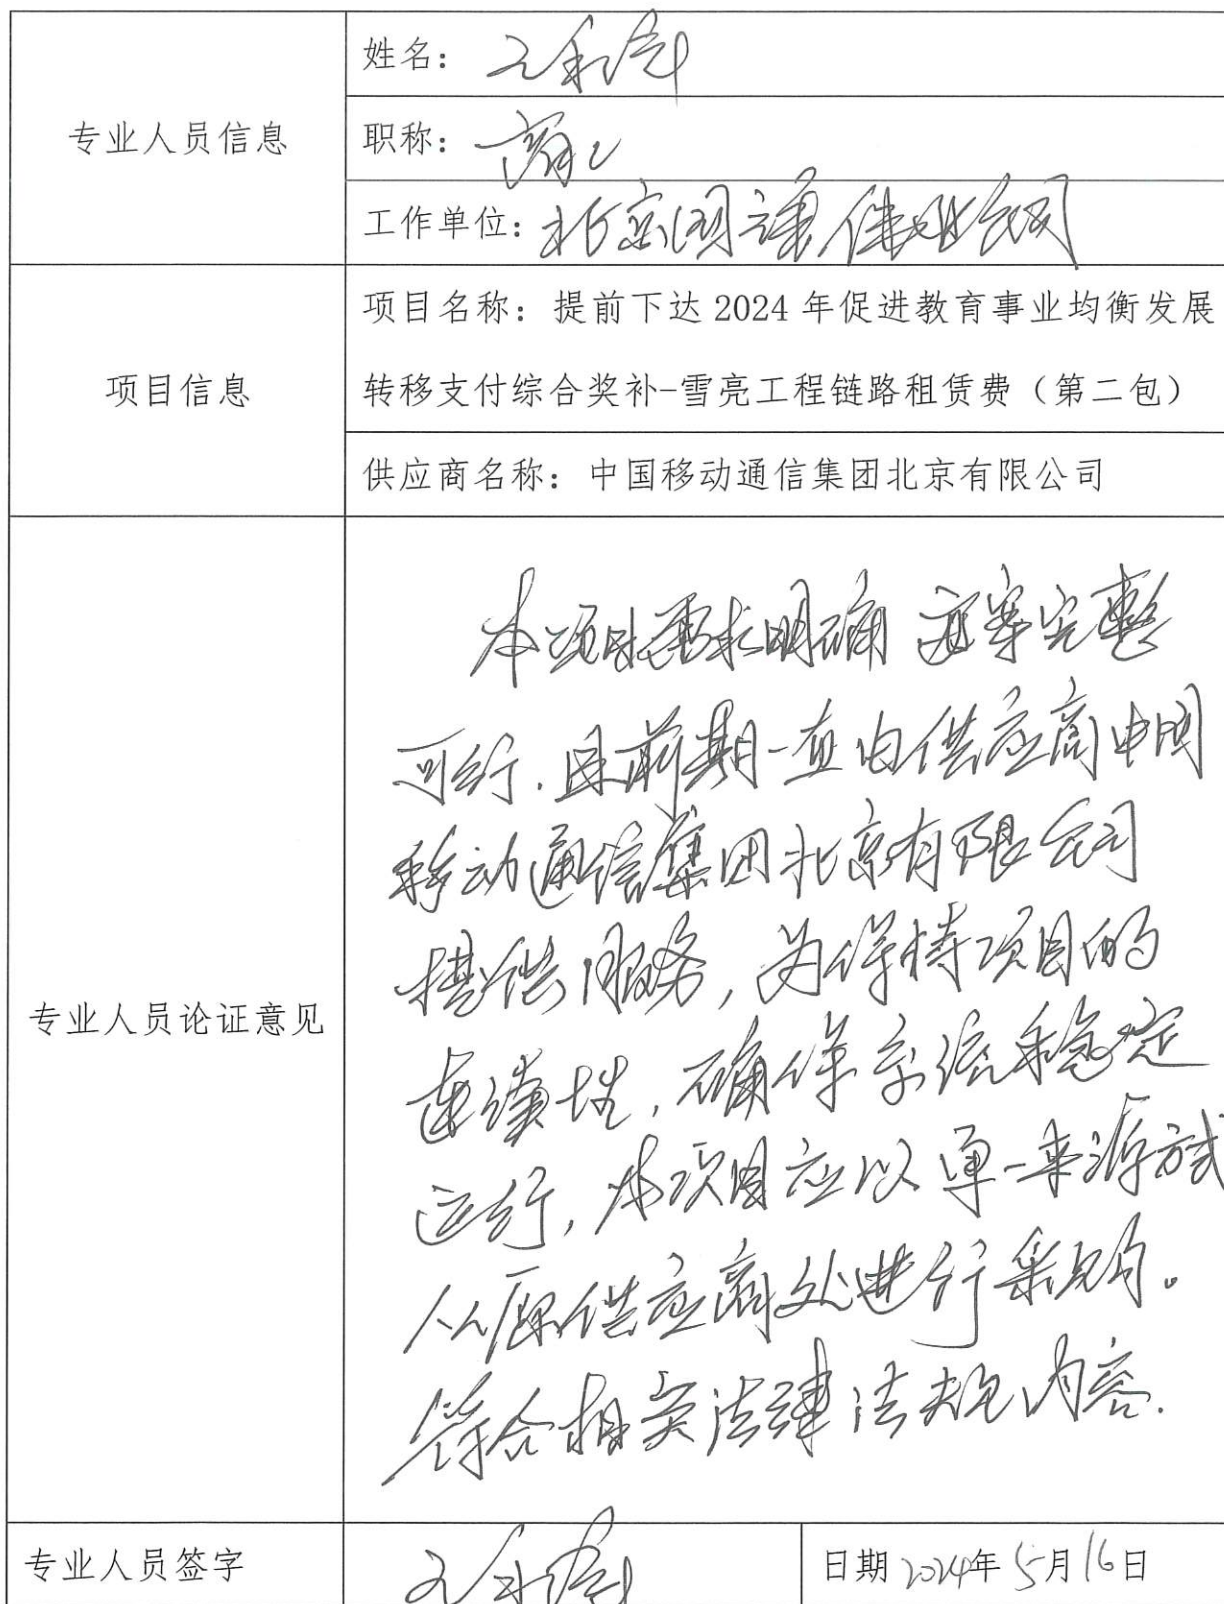 专业人员信息
姓名：
职称：高工
工作单位：北京国谦伟业公司
项目信息
项目名称：提前下达2024年促进教育事业均衡发展
转移支付综合奖补-雪亮工程链路租赁费（第二包）
供应商名称：中国移动通信集团北京有限公司
专业人员论证意见
本项目需求明确 方案完整
可行.且前期一直由供应商中国
移动通信集团北京有限公司
提供服务,为保持项目的
连续性,确保系统稳定
运行,本项目应以单一来源方式
从原供应商处进行采购。
符合相关法律法规内容.
专业人员签字
日期2024年5月16日